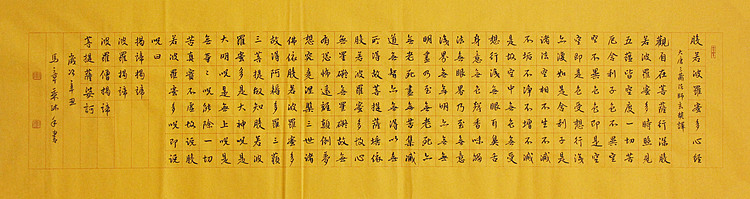 般若波羅蜜多心經
大唐三藏法師玄奘譯
觀自在菩薩行深般
若波羅蜜多時照見
五蘊皆空度一切苦
厄舍利子色不異空
空不異色色即是空
空即是色受想行識
亦復如是舍利子是
諸法空相不生不滅
不垢不淨不增不減
是故空中無色無受
想行識無眼耳鼻舌
身意無色聲香味觸
法無眼界乃至無意
識界無無明亦無無
明盡乃至無老死亦
無老死盡無苦集滅
道無智亦無得以無
所得故菩提薩埵依
般若波羅蜜多故心
無罣礙無罣礙故無
有恐怖遠離顛倒夢
想究竟涅槃三世諸
佛依般若波羅蜜多
故得阿耨多羅三藐
三菩提故知般若波
羅蜜多是大神呪是
大明呪是無上呪是
無等々呪能除一切
苦真實不虛故說般
若波羅蜜多呪即說
呪曰
揭諦揭諦
波羅揭諦
波羅僧揭諦
菩提薩婆訶
歲次辛丑
馬沐手書